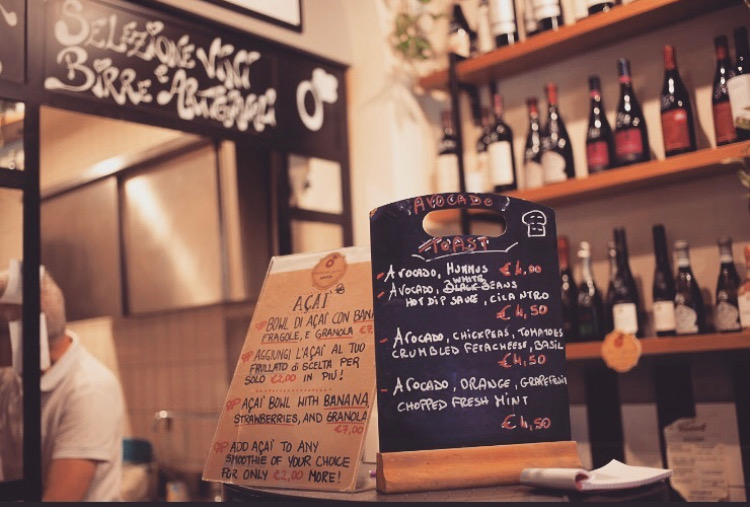 SELEZIONE VINI
BIRRE E ARTIGIANALI
AVOCADO
TOAST
- AVOCADO, HUMMUS €4,00
- AVOCADO, WHITE BEANS
HOT DIP SAUCE, CILANTRO
€4,50
- AVOCADO, CHICKPEAS, TOMATOES
CRUMBLED FETACHEESE, BASIL
€4,50
- AVOCADO, ORANGE, GRAPEFRUIT
CHOPPED FRESH MINT
€4,50
AÇAÏ
BOWL DI AÇAÏ CON
FRAGOLE, E GRANOLA
AGGIUNGI L'AÇAÏ AL TUO
FRULLATO DI SCELTA PER
SOLO €2,00 IN PIÙ!
AÇAÏ BOWL WITH BANANA,
STRAWBERRIES, AND GRANOLA
€7,00
ADD AÇAÏ TO ANY
SMOOTHIE OF YOUR CHOICE
FOR ONLY €2,00 MORE!